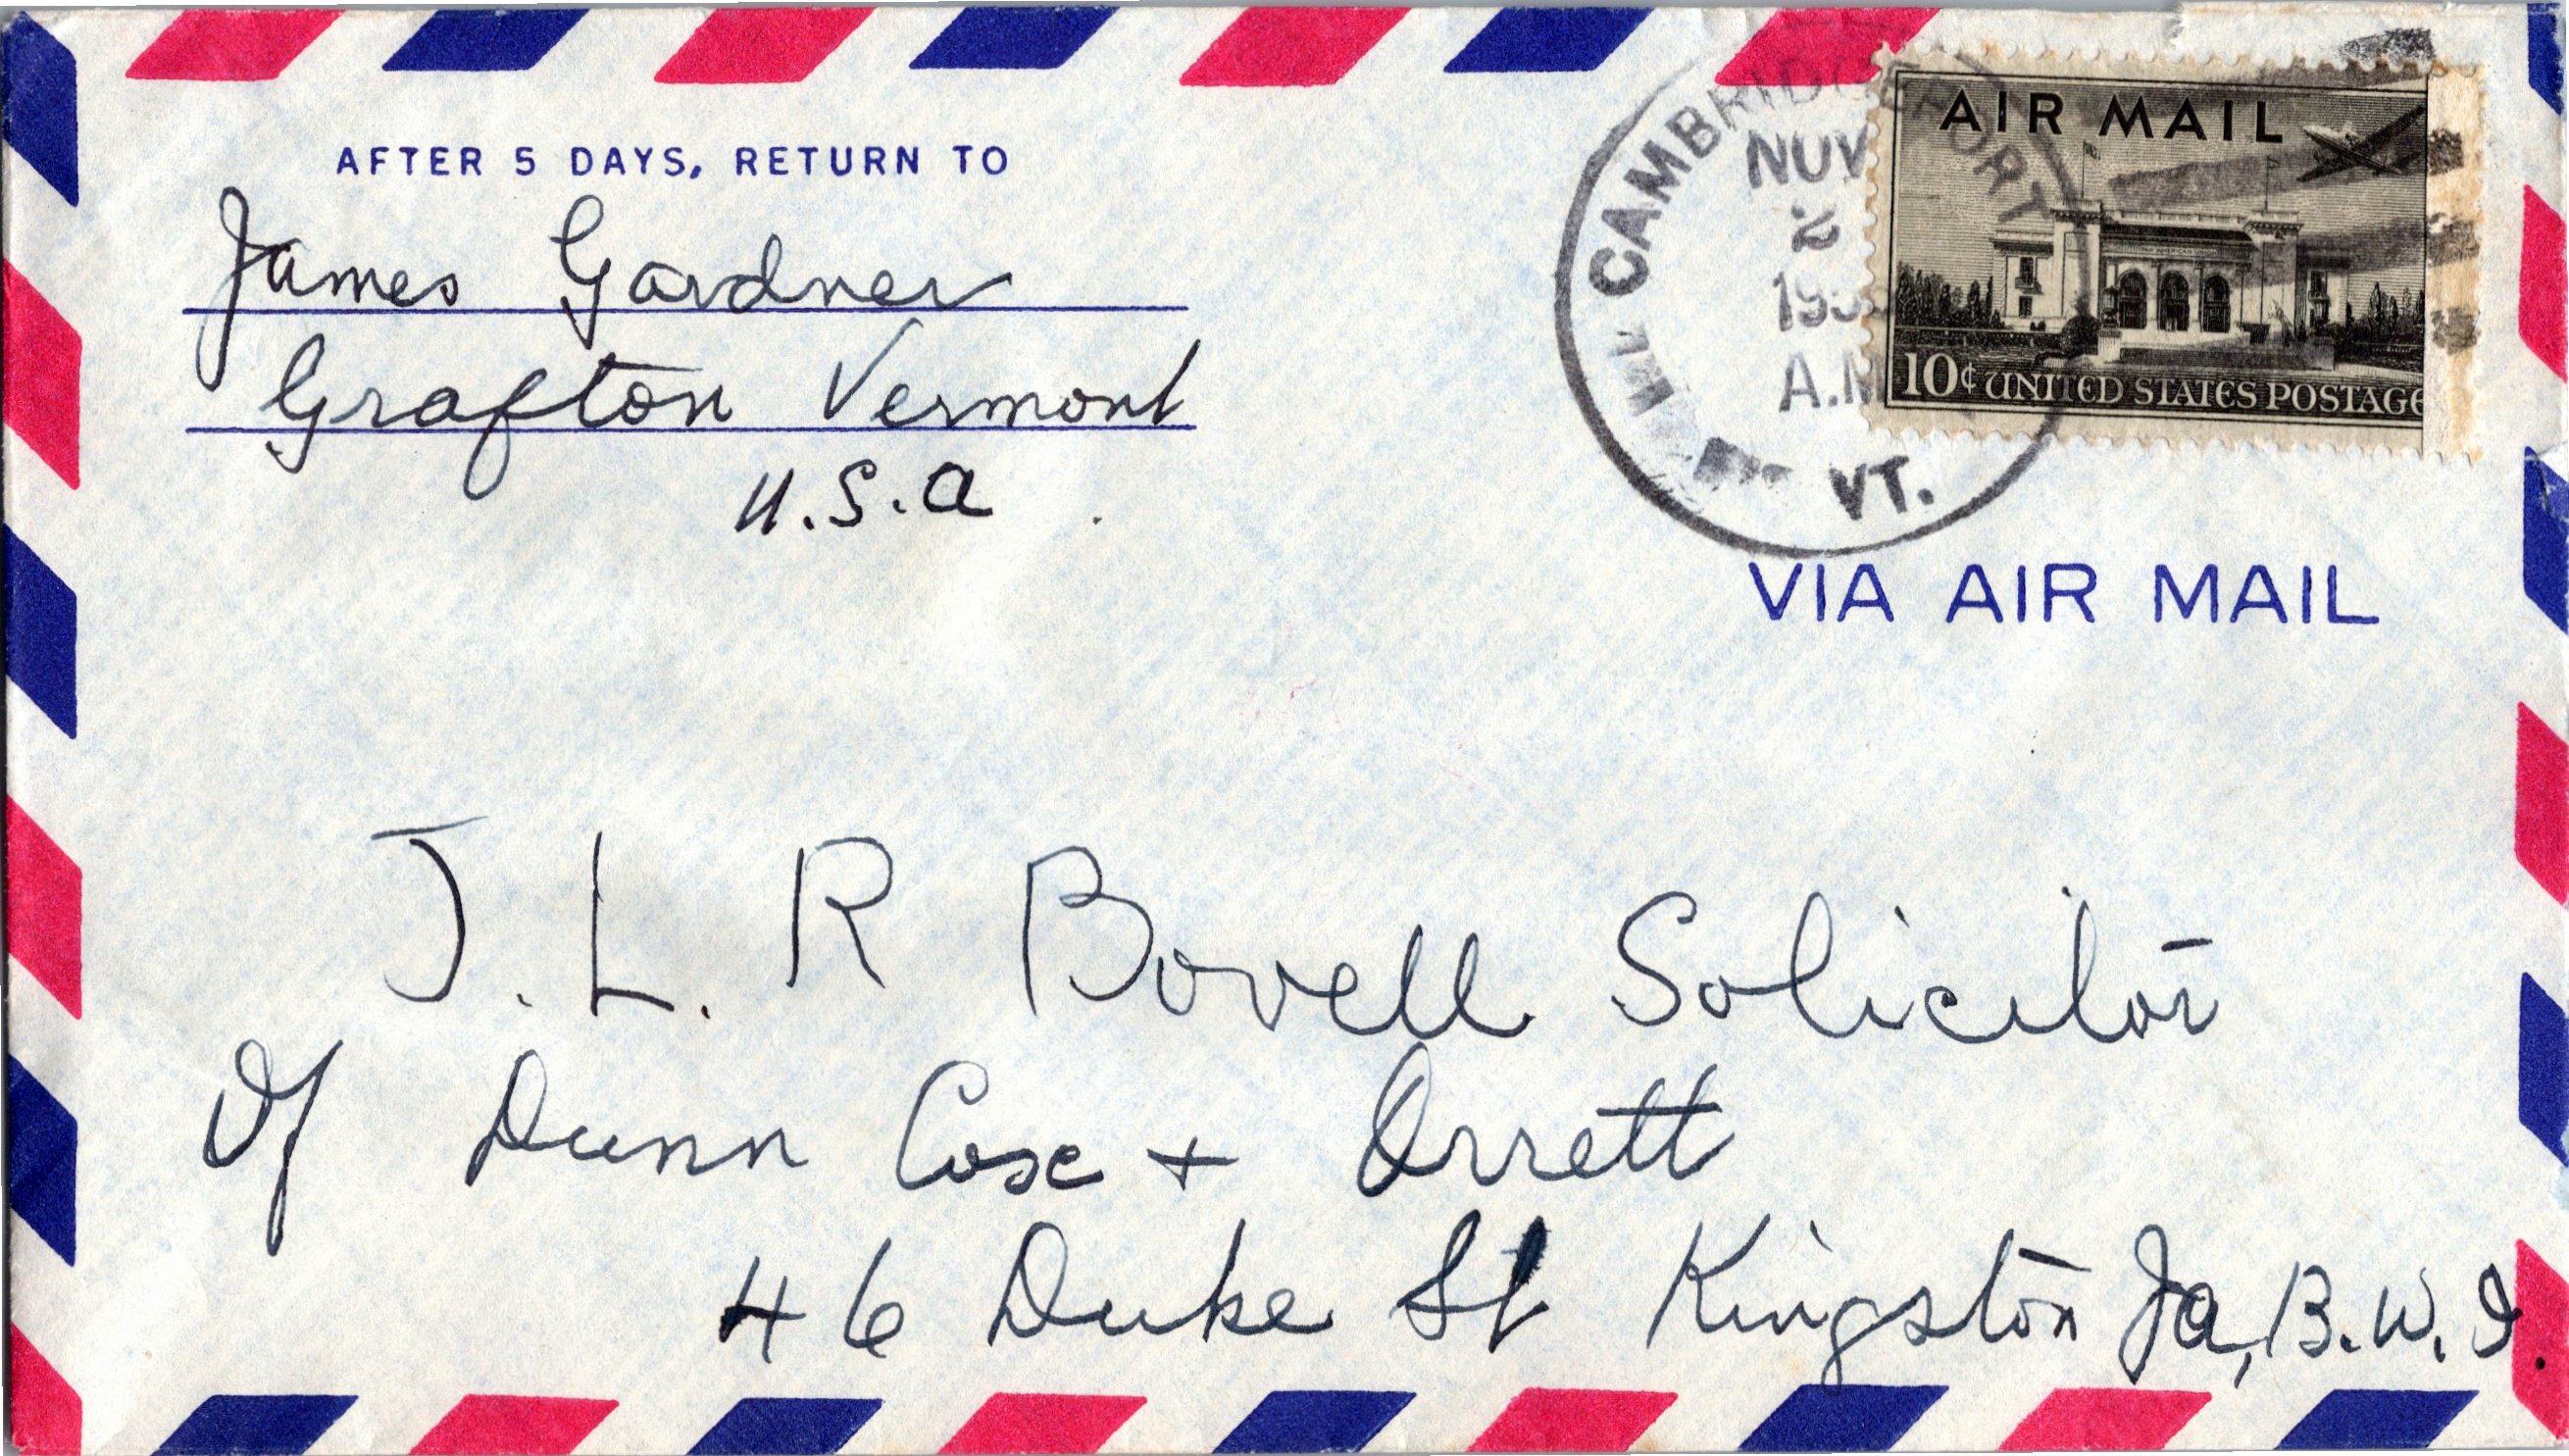 AFTER 5 DAYS, RETURN TO
James Gardner
Grafton Vermont
U.S.A
CAMBRIDGEPORT
NOV
2
A.M
VT.
AIR MAIL
10¢ UNITED STATES POSTAGE
VIA AIR MAIL
J. L. R Bovell Solicitor
Of Dunn Cox + Orrett
46 Duke St Kingston Ja, B.W.I.